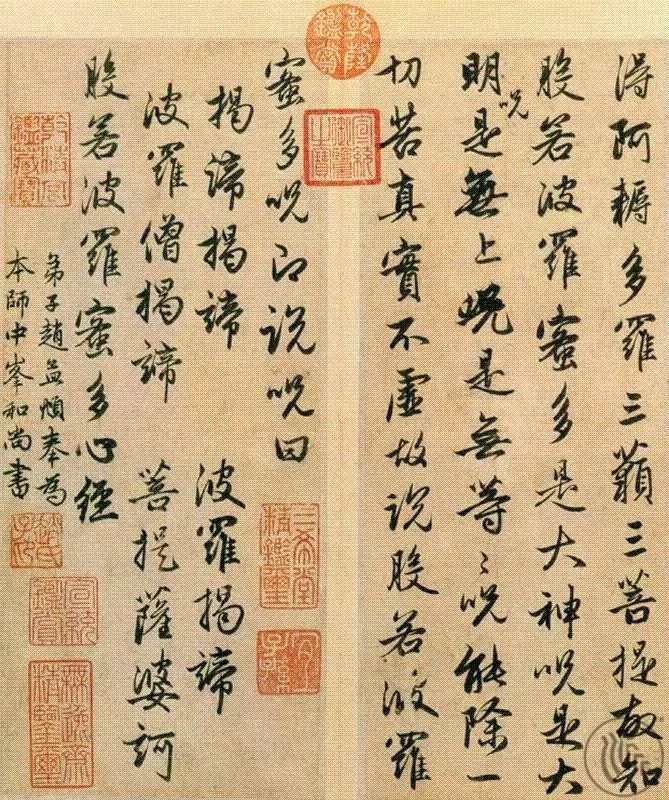 得阿耨多羅三藐三菩提故知
般若波羅蜜多是大神咒是大
明咒是無上咒是無等〻咒能除一
切苦真實不虛故說般若波羅
蜜多咒即說咒曰
揭諦揭諦 波羅揭諦
波羅僧揭諦 菩提薩婆訶
般若波羅蜜多心經
弟子趙孟頫奉為
本師中峯和尚書
乾隆鑑賞
宣統御覽之寶
三希堂精鑑璽
宜子孫
趙氏子昂
宣統鑑賞
無逸齋精鑒璽